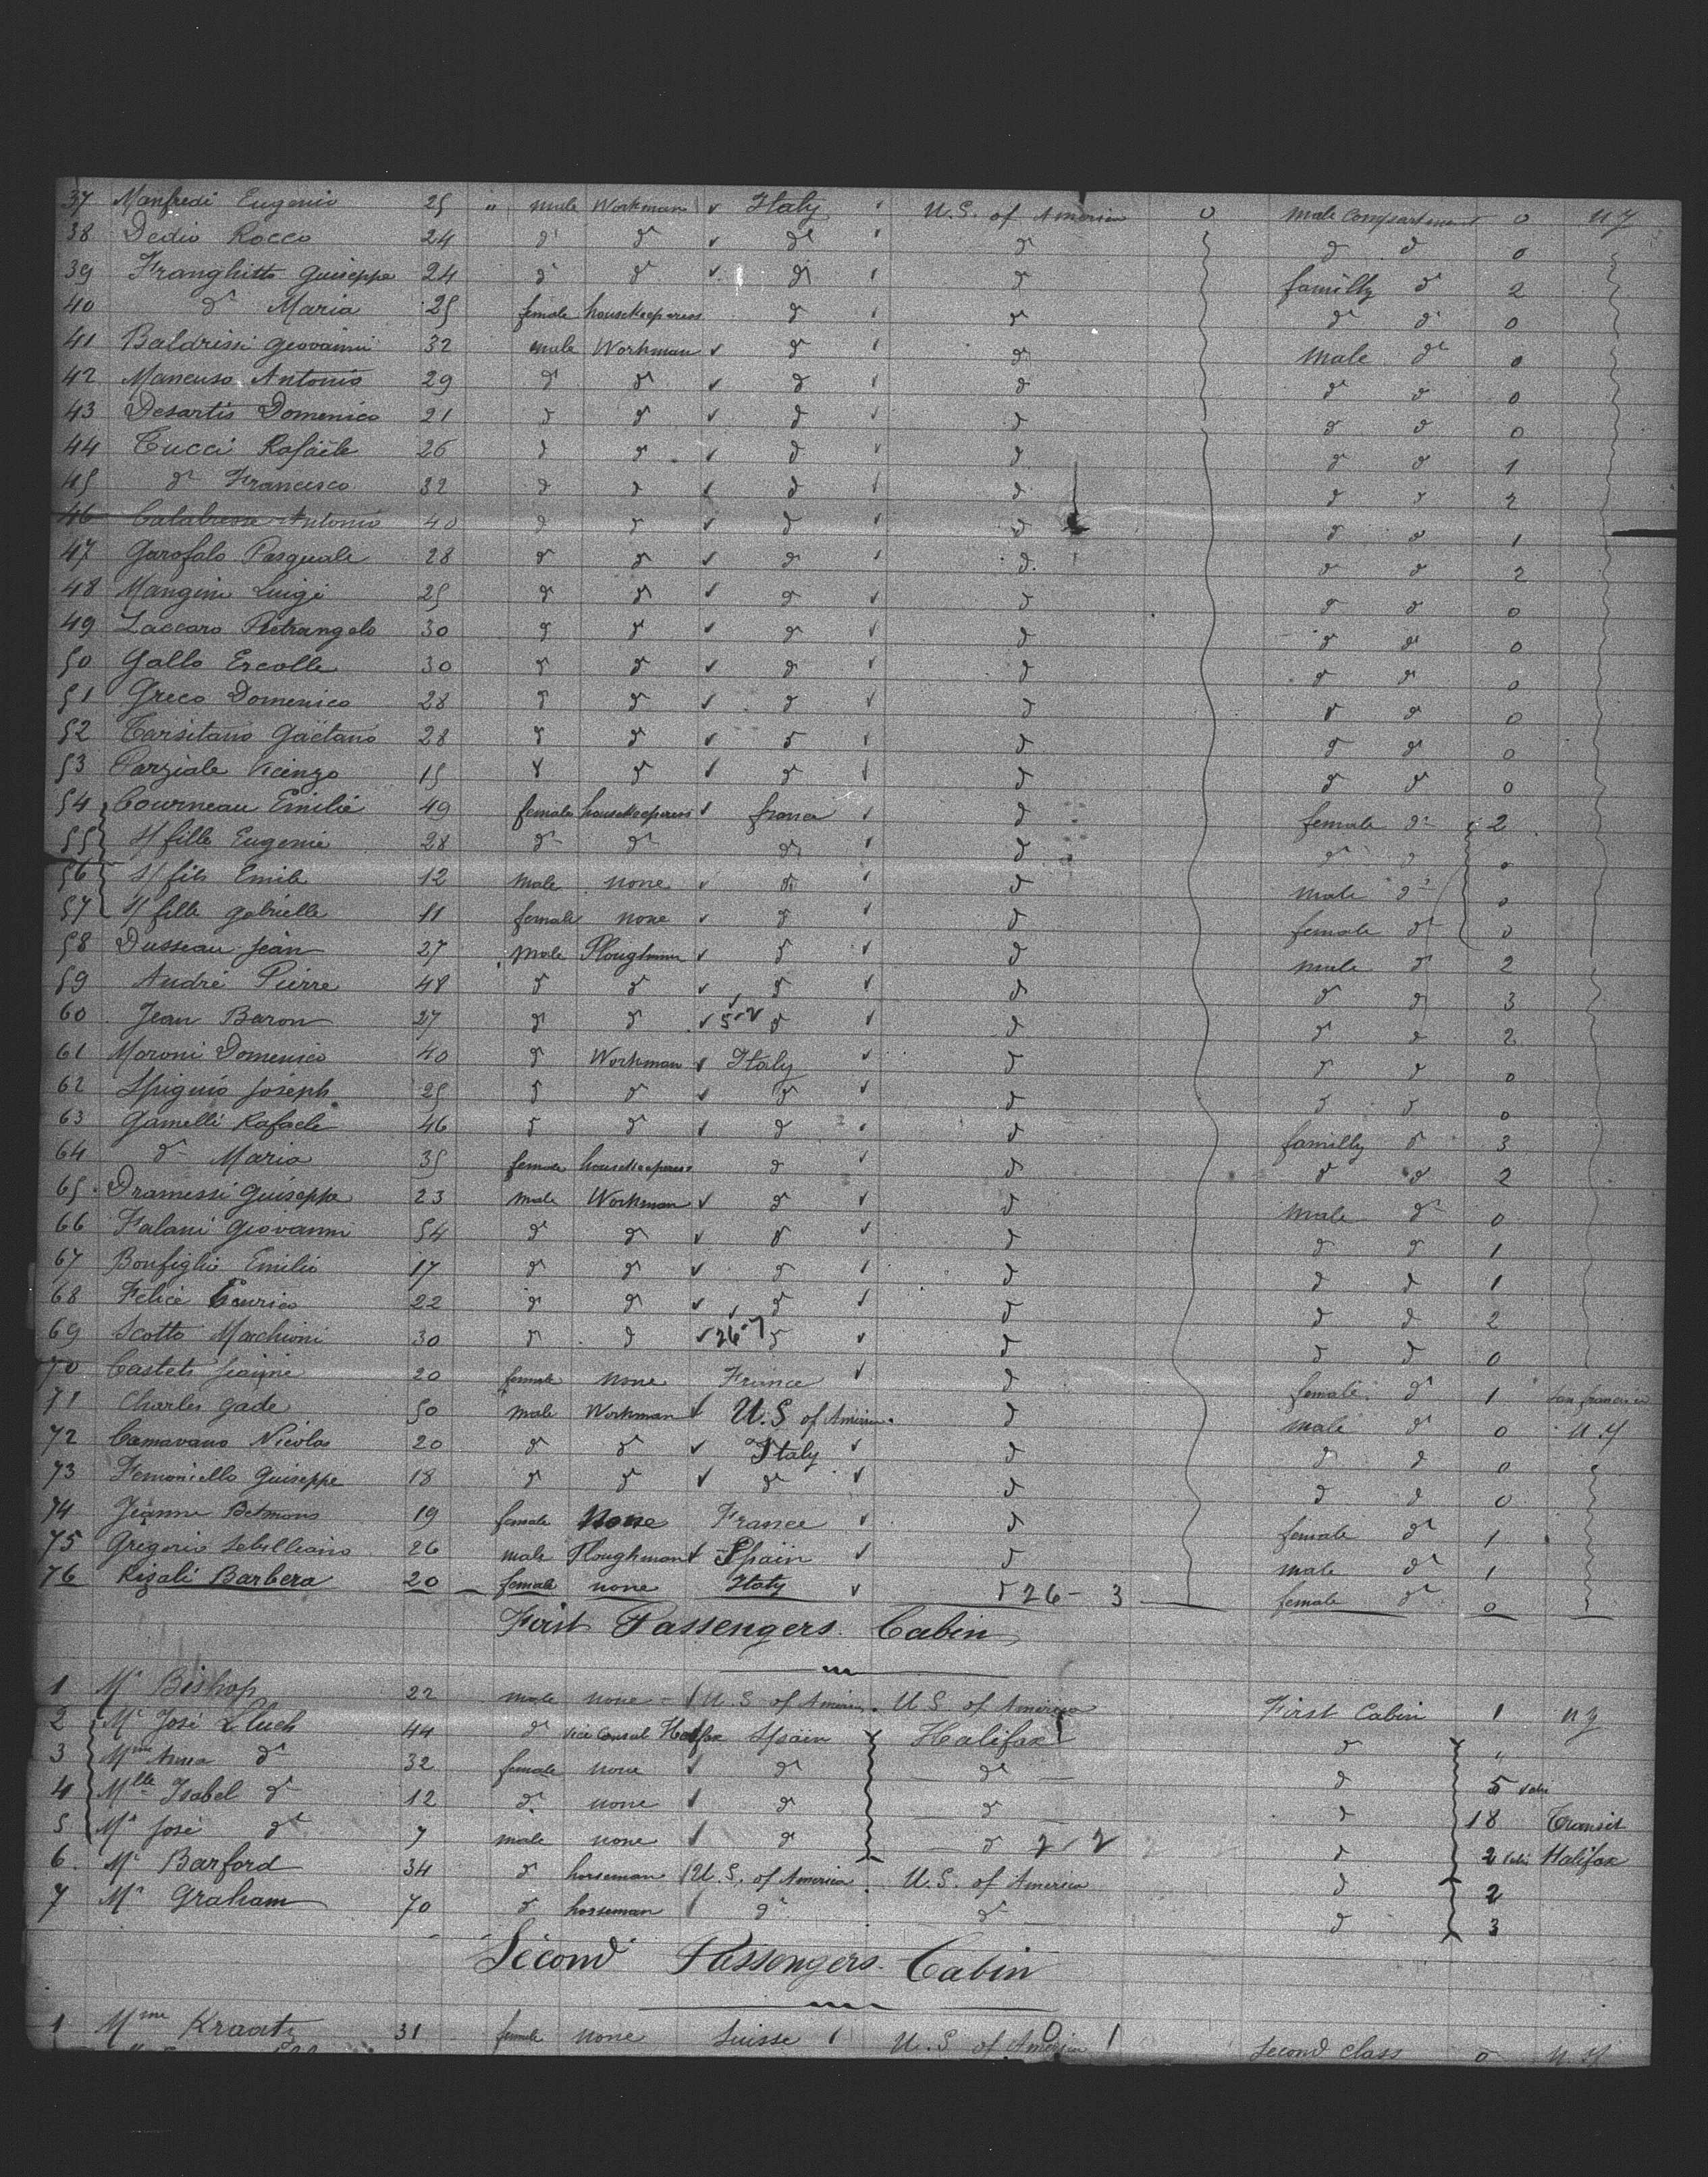 37 Manfredi Eugenio 25 " male Workman ✓ Italy ✓ U.S. of America 0 male compartement 0 N Y
38 Dedio Rocco 24 d° d° ✓ d° ✓ d° d° d° 0
39 Franghitto Guiseppe 24 d° d° ✓ d° ✓ d° familly d° 2
40 d° Maria 25 female housekeeperess d° ✓ d° d° d° 0
41 Baldrissi Geovanni 32 male Workman ✓ d° ✓ d° male d° 0
42 Mancuso Antonio 29 d° d° ✓ d° ✓ d° d° d° 0
43 Desartis Domenico 21 d° d° ✓ d° ✓ d° d° d° 0
44 Tucci Rafaële 26 d° d° ✓ d° ✓ d° d° d° 1
45 d° Francesco 32 d° d° ✓ d° ✓ d° d° d° 2
46 Calabrese Antonio 40 d° d° ✓ d° ✓ d° d° d° 1
47 Garofalo Pasquale 28 d° d° ✓ d° ✓ d° d° d° 2
48 Mangini Luigi 25 d° d° ✓ d° ✓ d° d° d° 0
49 Laccaro Pietrangelo 30 d° d° ✓ d° ✓ d° d° d° 0
50 Gallo Ercolle 30 d° d° ✓ d° ✓ d° d° d° 0
51 Greco Domenico 28 d° d° ✓ d° ✓ d° d° d° 0
52 Tarsitano Gaëtano 28 d° d° ✓ d° ✓ d° d° d° 0
53 Parziale Vicenzo 15 d° d° ✓ d° ✓ d° d° d° 0
54 Courneau Emilie 49 female housekeeperess ✓ france ✓ d° female d° 2
55 s/ fille Eugenie 28 d° d° d° ✓ d° d° d° 0
56 s/ fils Emile 12 male none ✓ d° ✓ d° male d° 0
57 s/ fille Gabrielle 11 female none ✓ d° ✓ d° female d° 0
58 Dusseau Jean 27 male Ploughman ✓ d° ✓ d° male d° 2
59 André Pierre 48 d° d° ✓ d° ✓ d° d° d° 3
60 Jean Baron 27 d° d° ✓ 5-2 d° ✓ d° d° d° 2
61 Moroni Domenico 40 d° Workman ✓ Italy ✓ d° d° d° 0
62 Spiguio Joseph 25 d° d° ✓ d° ✓ d° d° d° 0
63 Gamelli Rafaele 46 d° d° ✓ d° ✓ d° familly d° 3
64 d° Maria 35 female housekeeperess d° ✓ d° d° d° 2
65 Dramessi Guiseppe 23 male Workman ✓ d° ✓ d° male d° 0
66 Falani Giovanni 54 d° d° ✓ d° ✓ d° d° d° 1
67 Bonfiglio Emilio 17 d° d° ✓ d° ✓ d° d° d° 1
68 Felice Enrico 22 d° d° ✓ d° ✓ d° d° d° 2
69 Scotto Marchioni 30 d° d° ✓ 26-7 d° ✓ d° d° d° 0
70 Castets Jeanne 20 female none France ✓ d° female d° 1 San francisco
71 Charles Gade 50 male Workman ✓ U.S of America d° male d° 0 N.Y
72 Camavano Nicolas 20 d° d° ✓ Italy ✓ d° d° d° 0
73 Femoniello Guiseppe 18 d° d° ✓ d° ✓ d° d° d° 0
74 Jeanne Betmons 19 female None France ✓ d° female d° 1
75 Gregorio 26 male Ploughman ✓ Spain ✓ d° male d° 1
76 Rizali Barbera 20 female none Italy ✓ d° 26 - 3 female d° 0
First Passengers Cabin
1 Mr Bishop 22 male none ✓ U.S of America U S of America First Cabin 1 N Y
2 Mr José Lluch 44 d° Vice Consul Halifax Spain Halifax d° "
3 Mme Anna d° 32 female none ✓ d° d° d° 5
4 Mlle Isabel d° 12 d° none ✓ d° d° d° 18 Transit
5 Mr José d° 7 male none ✓ d° d° 2 / 2 d° 2 Halifax
6. Mr Barford 34 d° horseman U.S. of America U.S. of America d° 2
7 Mr Graham 70 d° horseman d° d° d° 3
Second Passengers Cabin
1 Mme Kraatz 31 female none Suisse U.S of America 0 1 Second Class 0 N Y